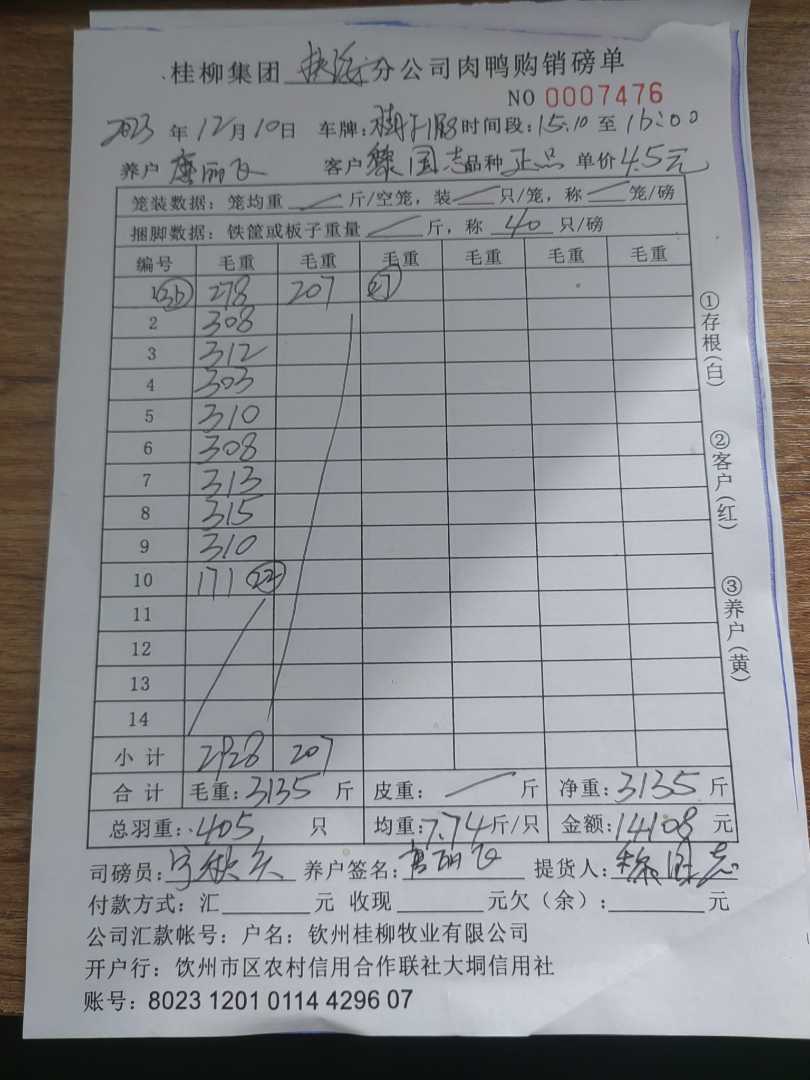 桂柳集团 分公司肉鸭购销磅单
NO 0007476
2023年12月10日 车牌: 时间段:15:10至16:00
养户 唐丽飞 客户 黎国志 品种 正品 单价 4.5元
笼装数据:笼均重 斤/空笼,装 只/笼,称 笼/磅
捆脚数据:铁筐或板子重量 斤,称 40 只/磅
编号 毛重 毛重 毛重 毛重 毛重 毛重
1 36 278 207 27
2 308
3 312
4 303
5 310
6 308
7 313
8 315
9 310
10 171 22
11
12
13
14
小计 2928 207
合计 毛重:3135斤 皮重: 斤 净重:3135斤
总羽重:405只 均重:7.74斤/只 金额:14108元
司磅员: 养户签名:唐丽飞 提货人:黎国志
付款方式:汇 元 收现 元欠(余): 元
公司汇款帐号:户名:钦州桂柳牧业有限公司
开户行:饮州市区农村信用合作联社大垌信用社
账号:8023 1201 0114 4296 07
①存根(白)
②客户(红)
③养户(黄)